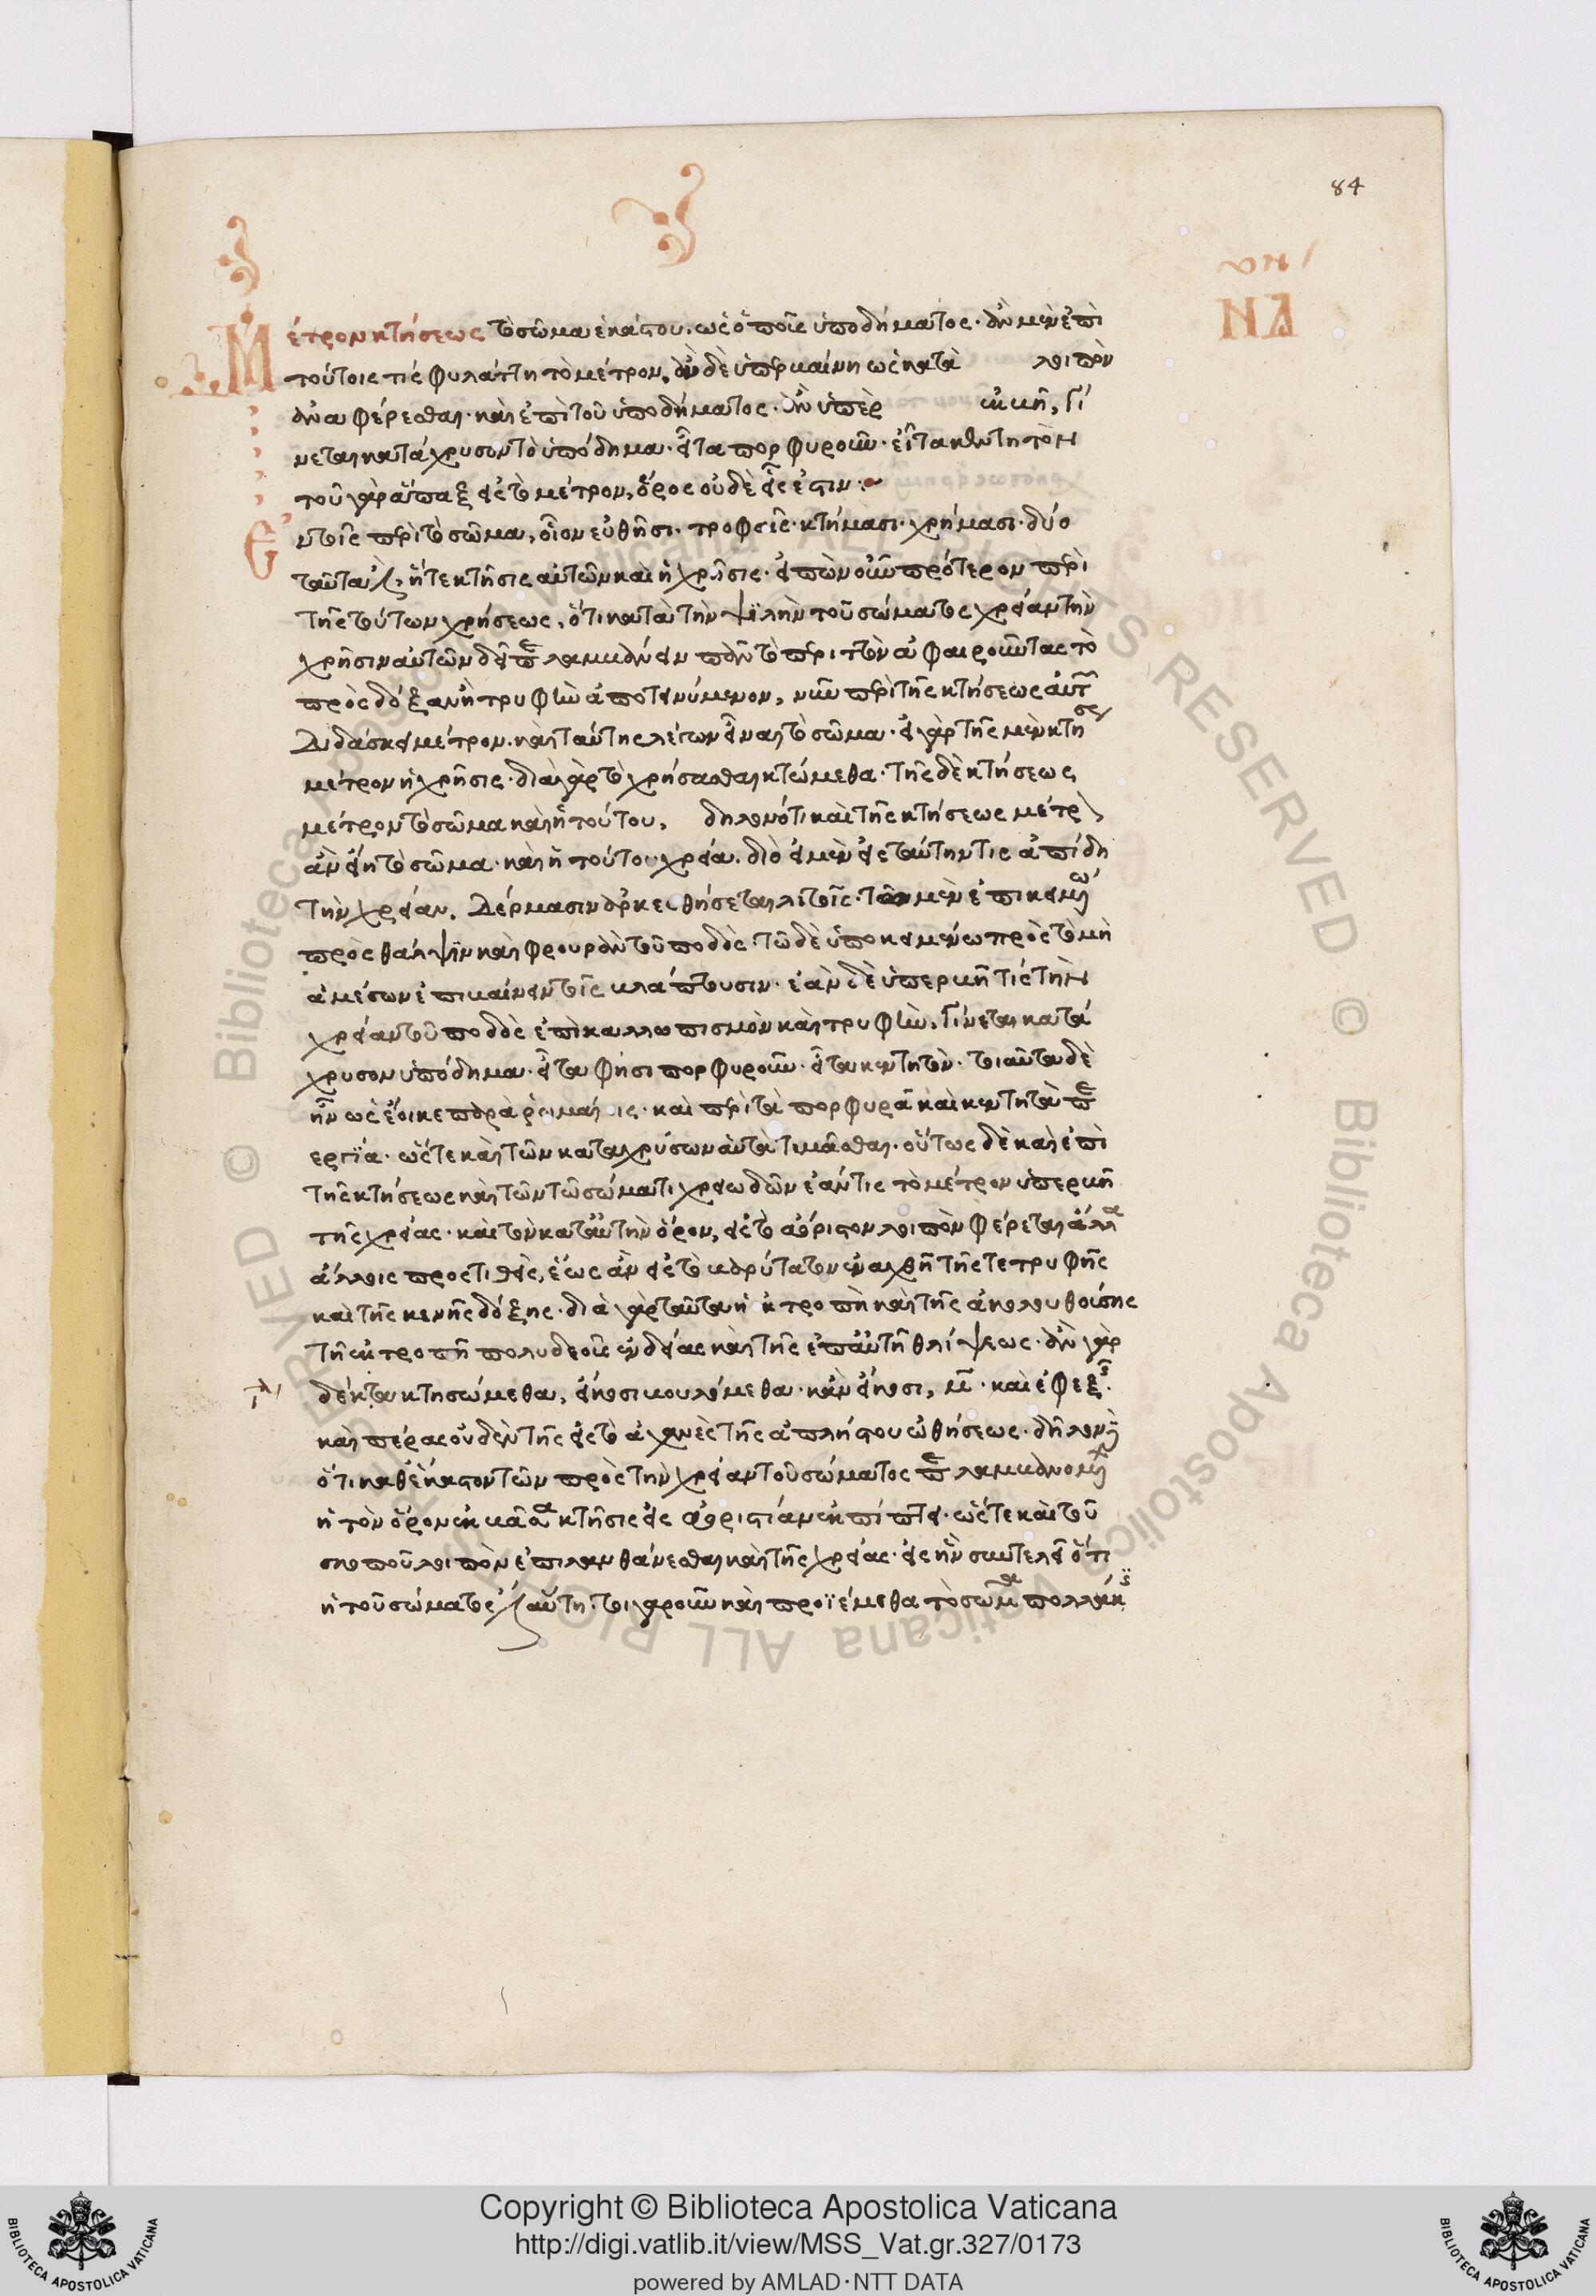 84
ΝΔ
Μέτρον κτήσεως τὸ σῶμα ἑκάστου. ὡς ὁ ποῦς ὑποδήματος. ἂν μὲν ἐπὶ
τούτοις τίς φυλάττῃ τὸ μέτρον, ἂν δὲ ὑπερβαίνῃ ὡς κατὰ λοιπὸν
ἀνα φέρεσθαι. καὶ ἐπὶ τοῦ ὑποδήματος. ἂν ὑπὲρ ἐκβῇ, γί
νεται κατάχρυσον τὸ ὑπόδημα. εἶτα πορφυροῦν. εἶτα κεντητὸν
τοῦ γὰρ ἅπαξ εἰς τὸ μέτρον, ὅρος οὐδεῖς ἐστιν.
Ἐν τοῖς περὶ τὸ σῶμα, οἷον ἐσθῆσι. τροφαῖς. κτήμασι. χρήμασι. δύο
ταῦτα ἐστὶ, ἥ τε κτῆσις αὐτῶν καὶ ἡ χρῆσις. εἰπὼν οὖν πρότερον περὶ
τῆς τούτων χρήσεως, ὅτι κατὰ τὴν ψιλὴν τοῦ σώματος χρείαν τὴν
χρῆσιν αὐτῶν δεῖ παραλαμβάνειν παν τὸ περιττὸν ἀφαιροῦντας τὸ
πρὸς δόξαν ἢ τρυφὴν ἀποτεινόμενον, νῦν περὶ τῆς κτήσεως αὐτῶν
διδάσκει μέτρον. καὶ ταύτης λέγων εἶναι τὸ σῶμα. εἰ γὰρ τῆς μὲν κτήσεως
μέτρον ἡ χρῆσις. διὰ γὰρ τὸ χρήσασθαι κτώμεθα. τῆς δὲ κτήσεως
μέτρον τὸ σῶμα καὶ ἡ τούτου, δηλονότι καὶ τῆς κτήσεως μέτρον
ἂν εἴη τὸ σῶμα. καὶ ἡ τούτου χρεία. διὸ εἰ μὲν εἰς ταύτην τις ἀπίδῃ
τὴν χρείαν, δέρμασιν ἀρκεσθήσεται λιτοῖς. τῶ μὲν ἐπικειμένω
πρὸς θάλψιν καὶ φρουρὰν τοῦ ποδὸς. τῶ δὲ ὑποκειμένω πρὸς τὸ μὴ
ἀμέσως ἐπιβαίνειν τοῖς βλάπτουσιν. ἐὰν δὲ ὑπερβῇ τίς τὴν
χρείαν τοῦ ποδὸς ἐπὶ καλλωπισμὸν καὶ τρυφὴν, γίνεται κατά
χρυσον ὑπόδημα. εἶτα φησι πορφυροῦν. εἶτα κεντητόν. τοιαῦτα δὲ
ἦν ὡς ἔοικε παρὰ ῥωμαίοις. καὶ περὶ τὰ πορφυρᾶ καὶ κεντητὰ περι
εργία. ὥστε καὶ τῶν καταχρύσων αὐτὰ τιμᾶσθαι. οὕτως δὲ καὶ ἐπὶ
τῆς κτήσεως καὶ τῶν τῶ σώματι χρειωδῶν ἐάν τις τὸ μέτρον ὑπερβῇ
τῆς χρείας. καὶ τὸν κατ' αὐτὴν ὅρον, εἰς τὸ ἀόριστον λοιπὸν φέρεται ἄλλα
ἄλλοις προστιθεὶς, ἕως ἂν εἰς τὸ βαρύτατον ἐναχθῇ τῆς τε τρυφῆς
καὶ τῆς κενῆς δόξης. διὰ γὰρ ταῦτα ἡ ἐκτροπὴ καὶ τῆς ἀκολουθούσης
τῇ ἐκτροπῇ πολυδεοῦς ἐνδείας καὶ τῆς ἐπ' αὐτῇ θλίψεως. ἂν γὰρ
δέκα κτησώμεθα, εἴκοσι βουλόμεθα. κἂν εἴκοσι, μ. καὶ ἐφεξῆς.
καὶ πέρας οὐδὲν τῆς εἰς τὸ ἀχανὲς τῆς ἀπλήστου ὠθήσεως. δῆλον δὲ
ὅτι καθ' ἕκαστον τῶν πρὸς τὴν χρείαν τοῦ σώματος παραλαμβανομένων
ἡ τὸν ὅρον ἐκβᾶσα κτῆσις εἰς ἀοριστίαν ἐκπίπτει. ὥστε καὶ τοῦ
σκοποῦ λοιπὸν ἐπιλανθάνεσθαι καὶ τῆς χρείας. εἰς ἣν συντελεῖ ὅτι
ἡ τοῦ σώματός ἐστιν αὕτη. τοιγαροῦν καὶ προϊέμεθα τὸ σῶμα πολλάκις
Copyright © Biblioteca Apostolica Vaticana
http://digi.vatlib.it/view/MSS_Vat.gr.327/0173
powered by AMLAD·NTT DATA